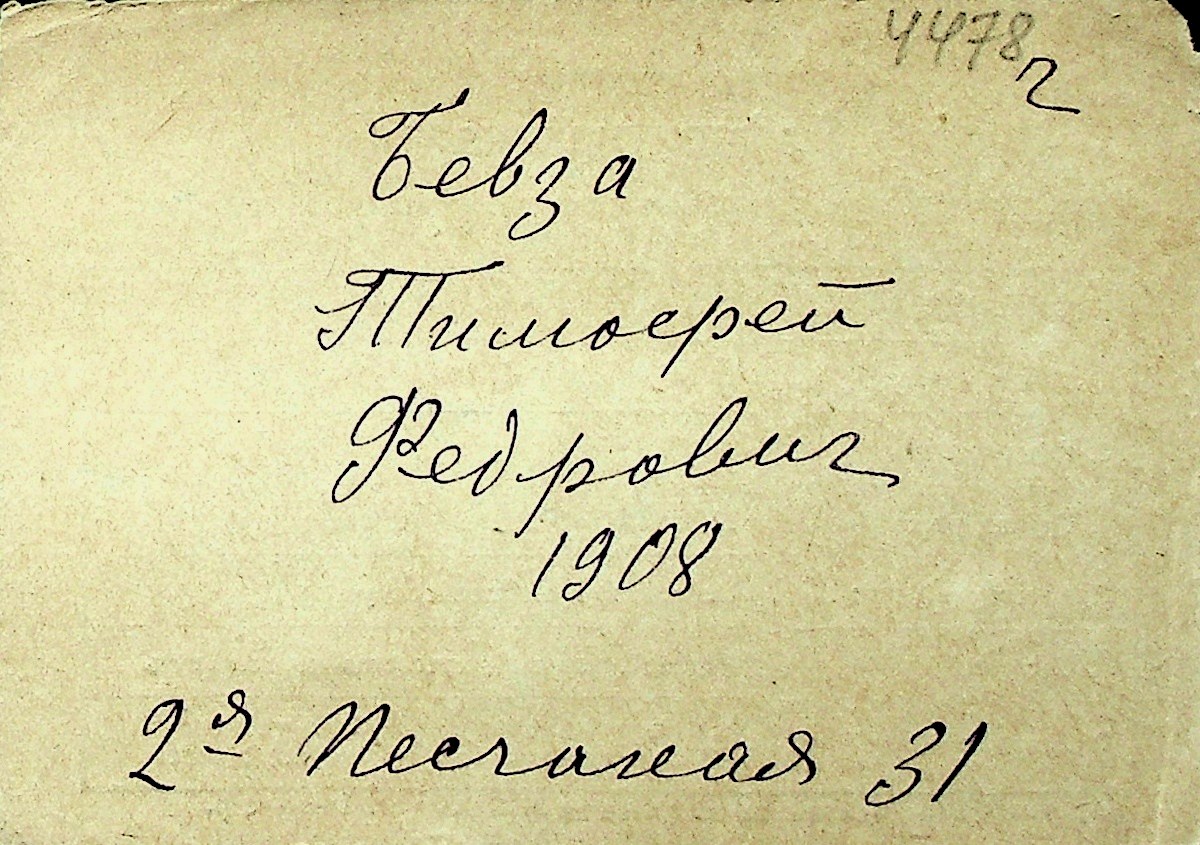 4478 г
Бевза
Тимофей
Федрович
1908
2я Песчаная 31